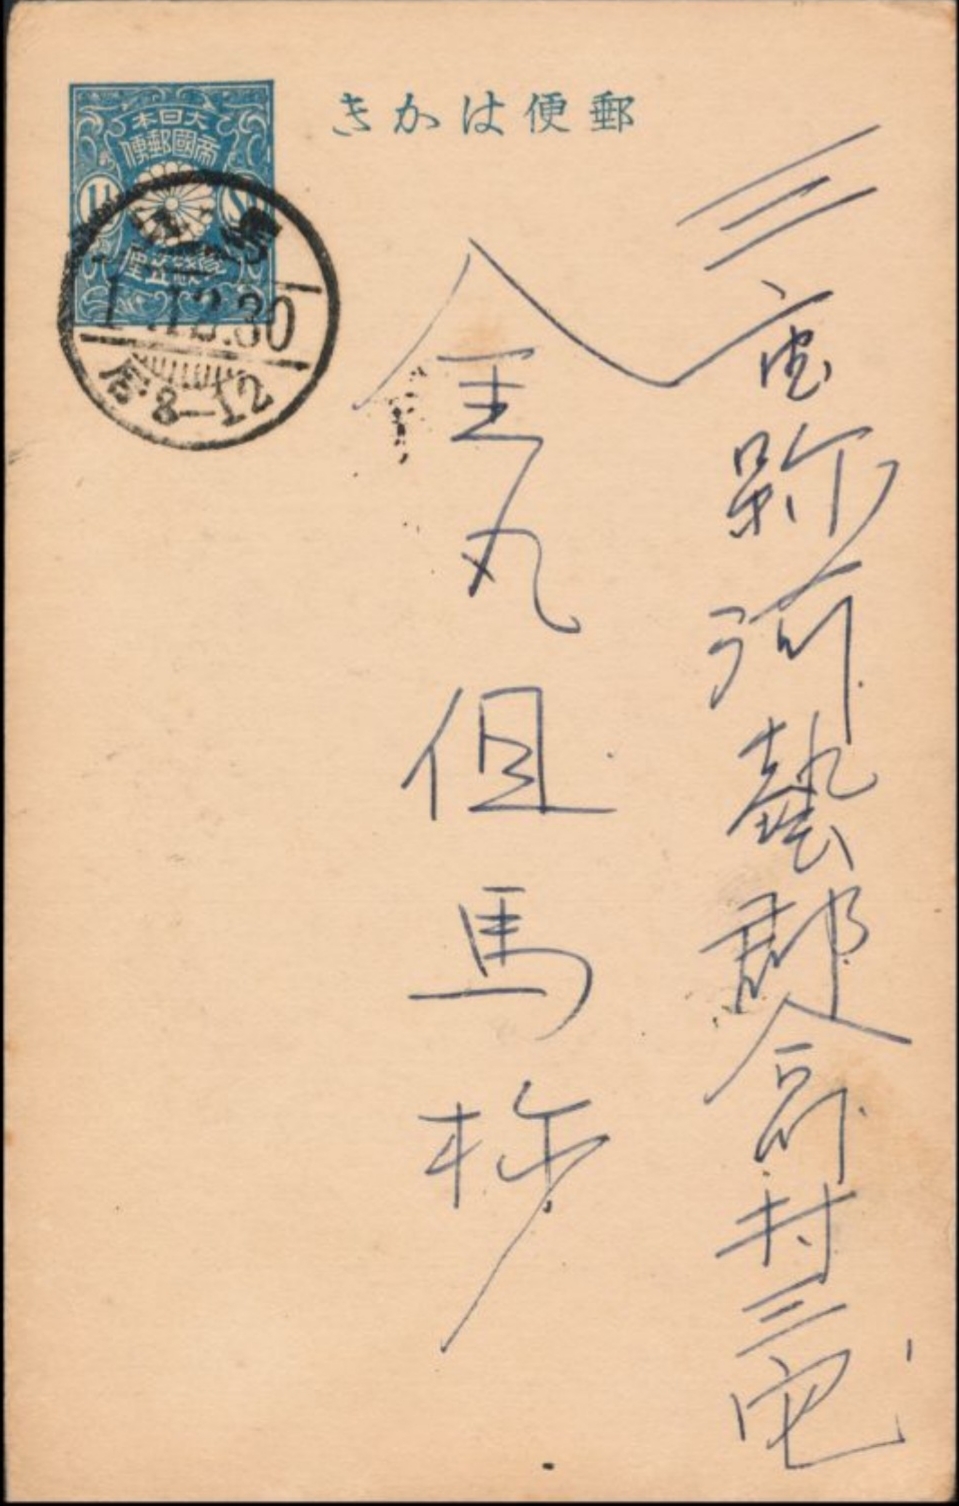 郵便はかき
大日本
帝國郵便
壹錢五厘
1½
1.12.30
8-12
三重縣河藝郡合川村三宅
金丸但馬様